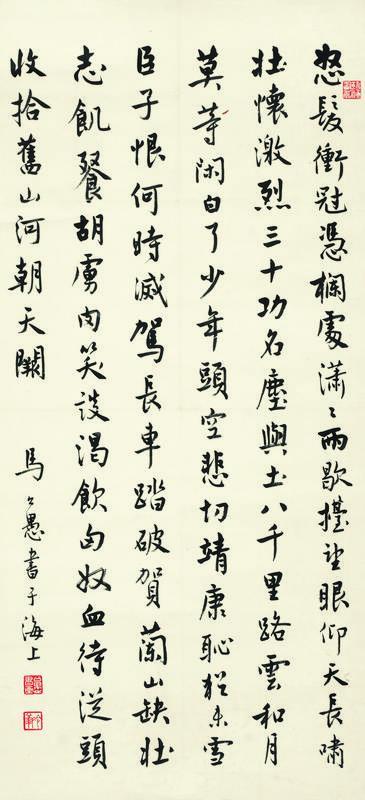 怒髮衝冠憑欄處瀟〻雨歇擡望眼仰天長嘯
壯懷激烈三十功名塵與土八千里路雲和月
莫等閑白了少年頭空悲切靖康恥猶未雪
臣子恨何時滅駕長車踏破賀蘭山缺壯
志飢餐胡虜肉笑談渴飲匈奴血待從頭
收拾舊山河朝天闕
馬公愚書于海上